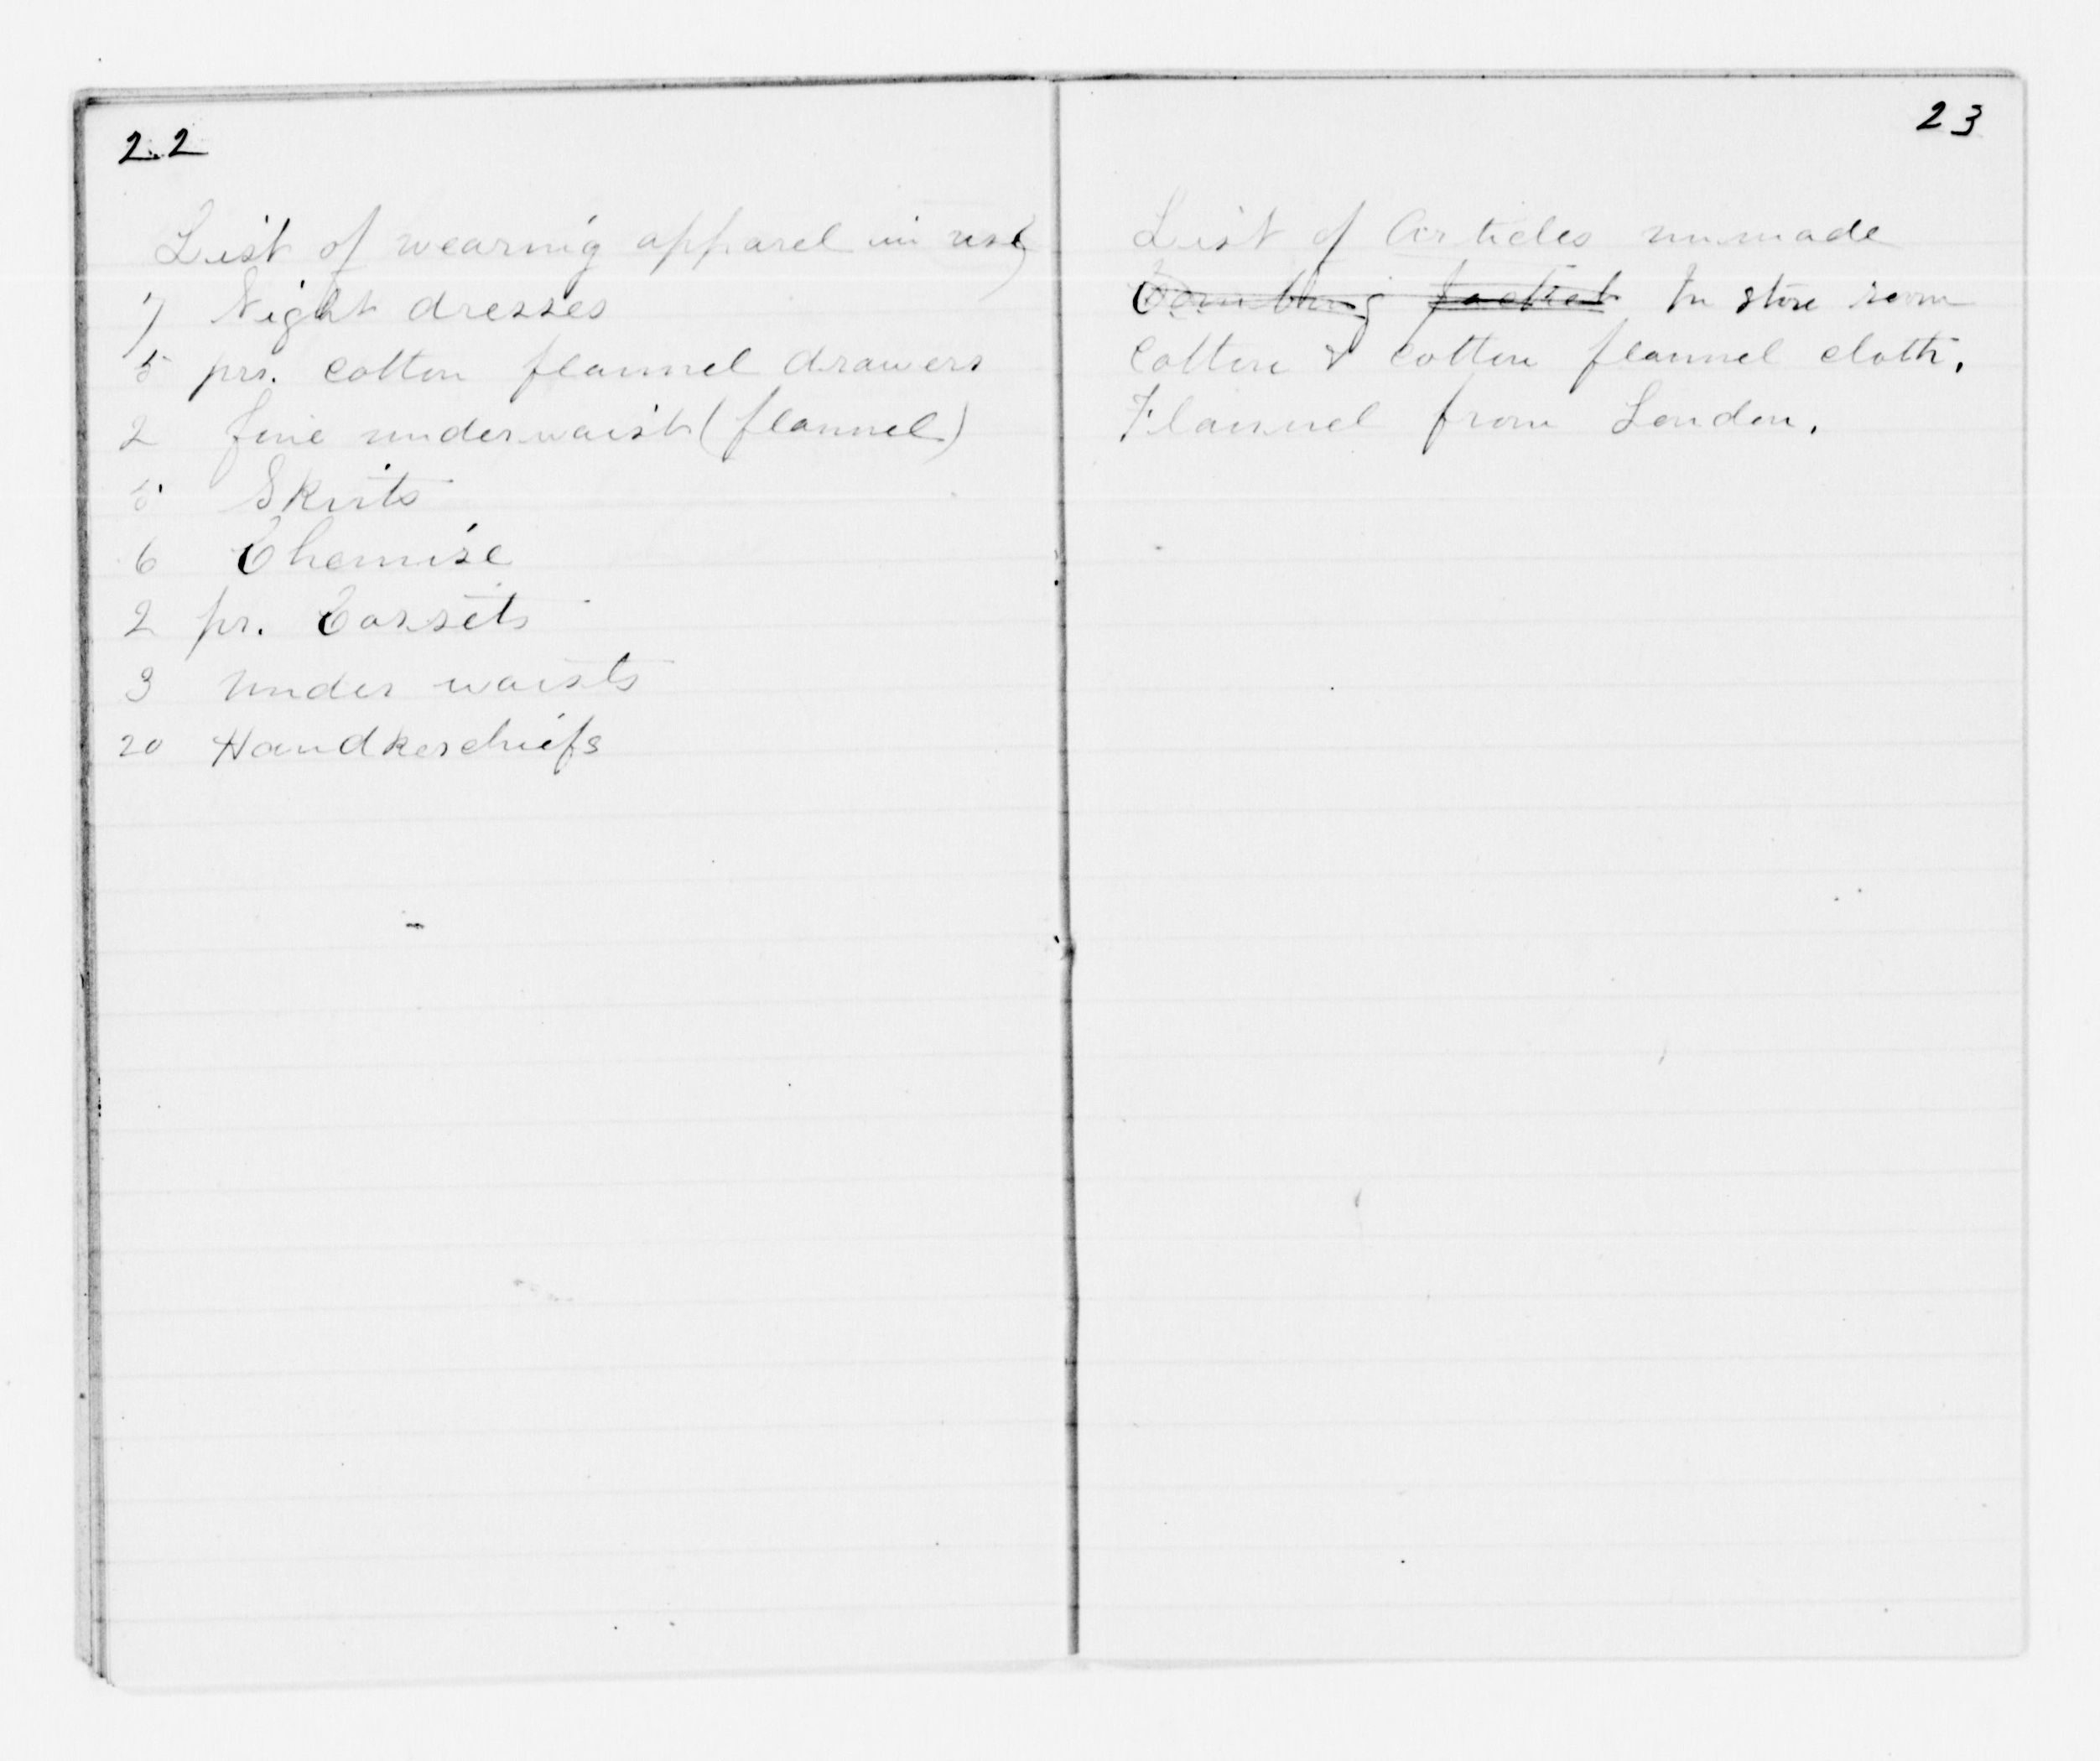 22
List of wearing apparel in use
7 Night dresses
5 prs. cotton flannel drawers
2 fine underwaist (flannel)
5 Skirts
6 Chemise
2 pr. Corsets
3 under waists
20 Handkerchiefs
23
List of Articles unmade
Combing jacket In store room
Cotton & cotton flannel cloth.
Flannel from London.